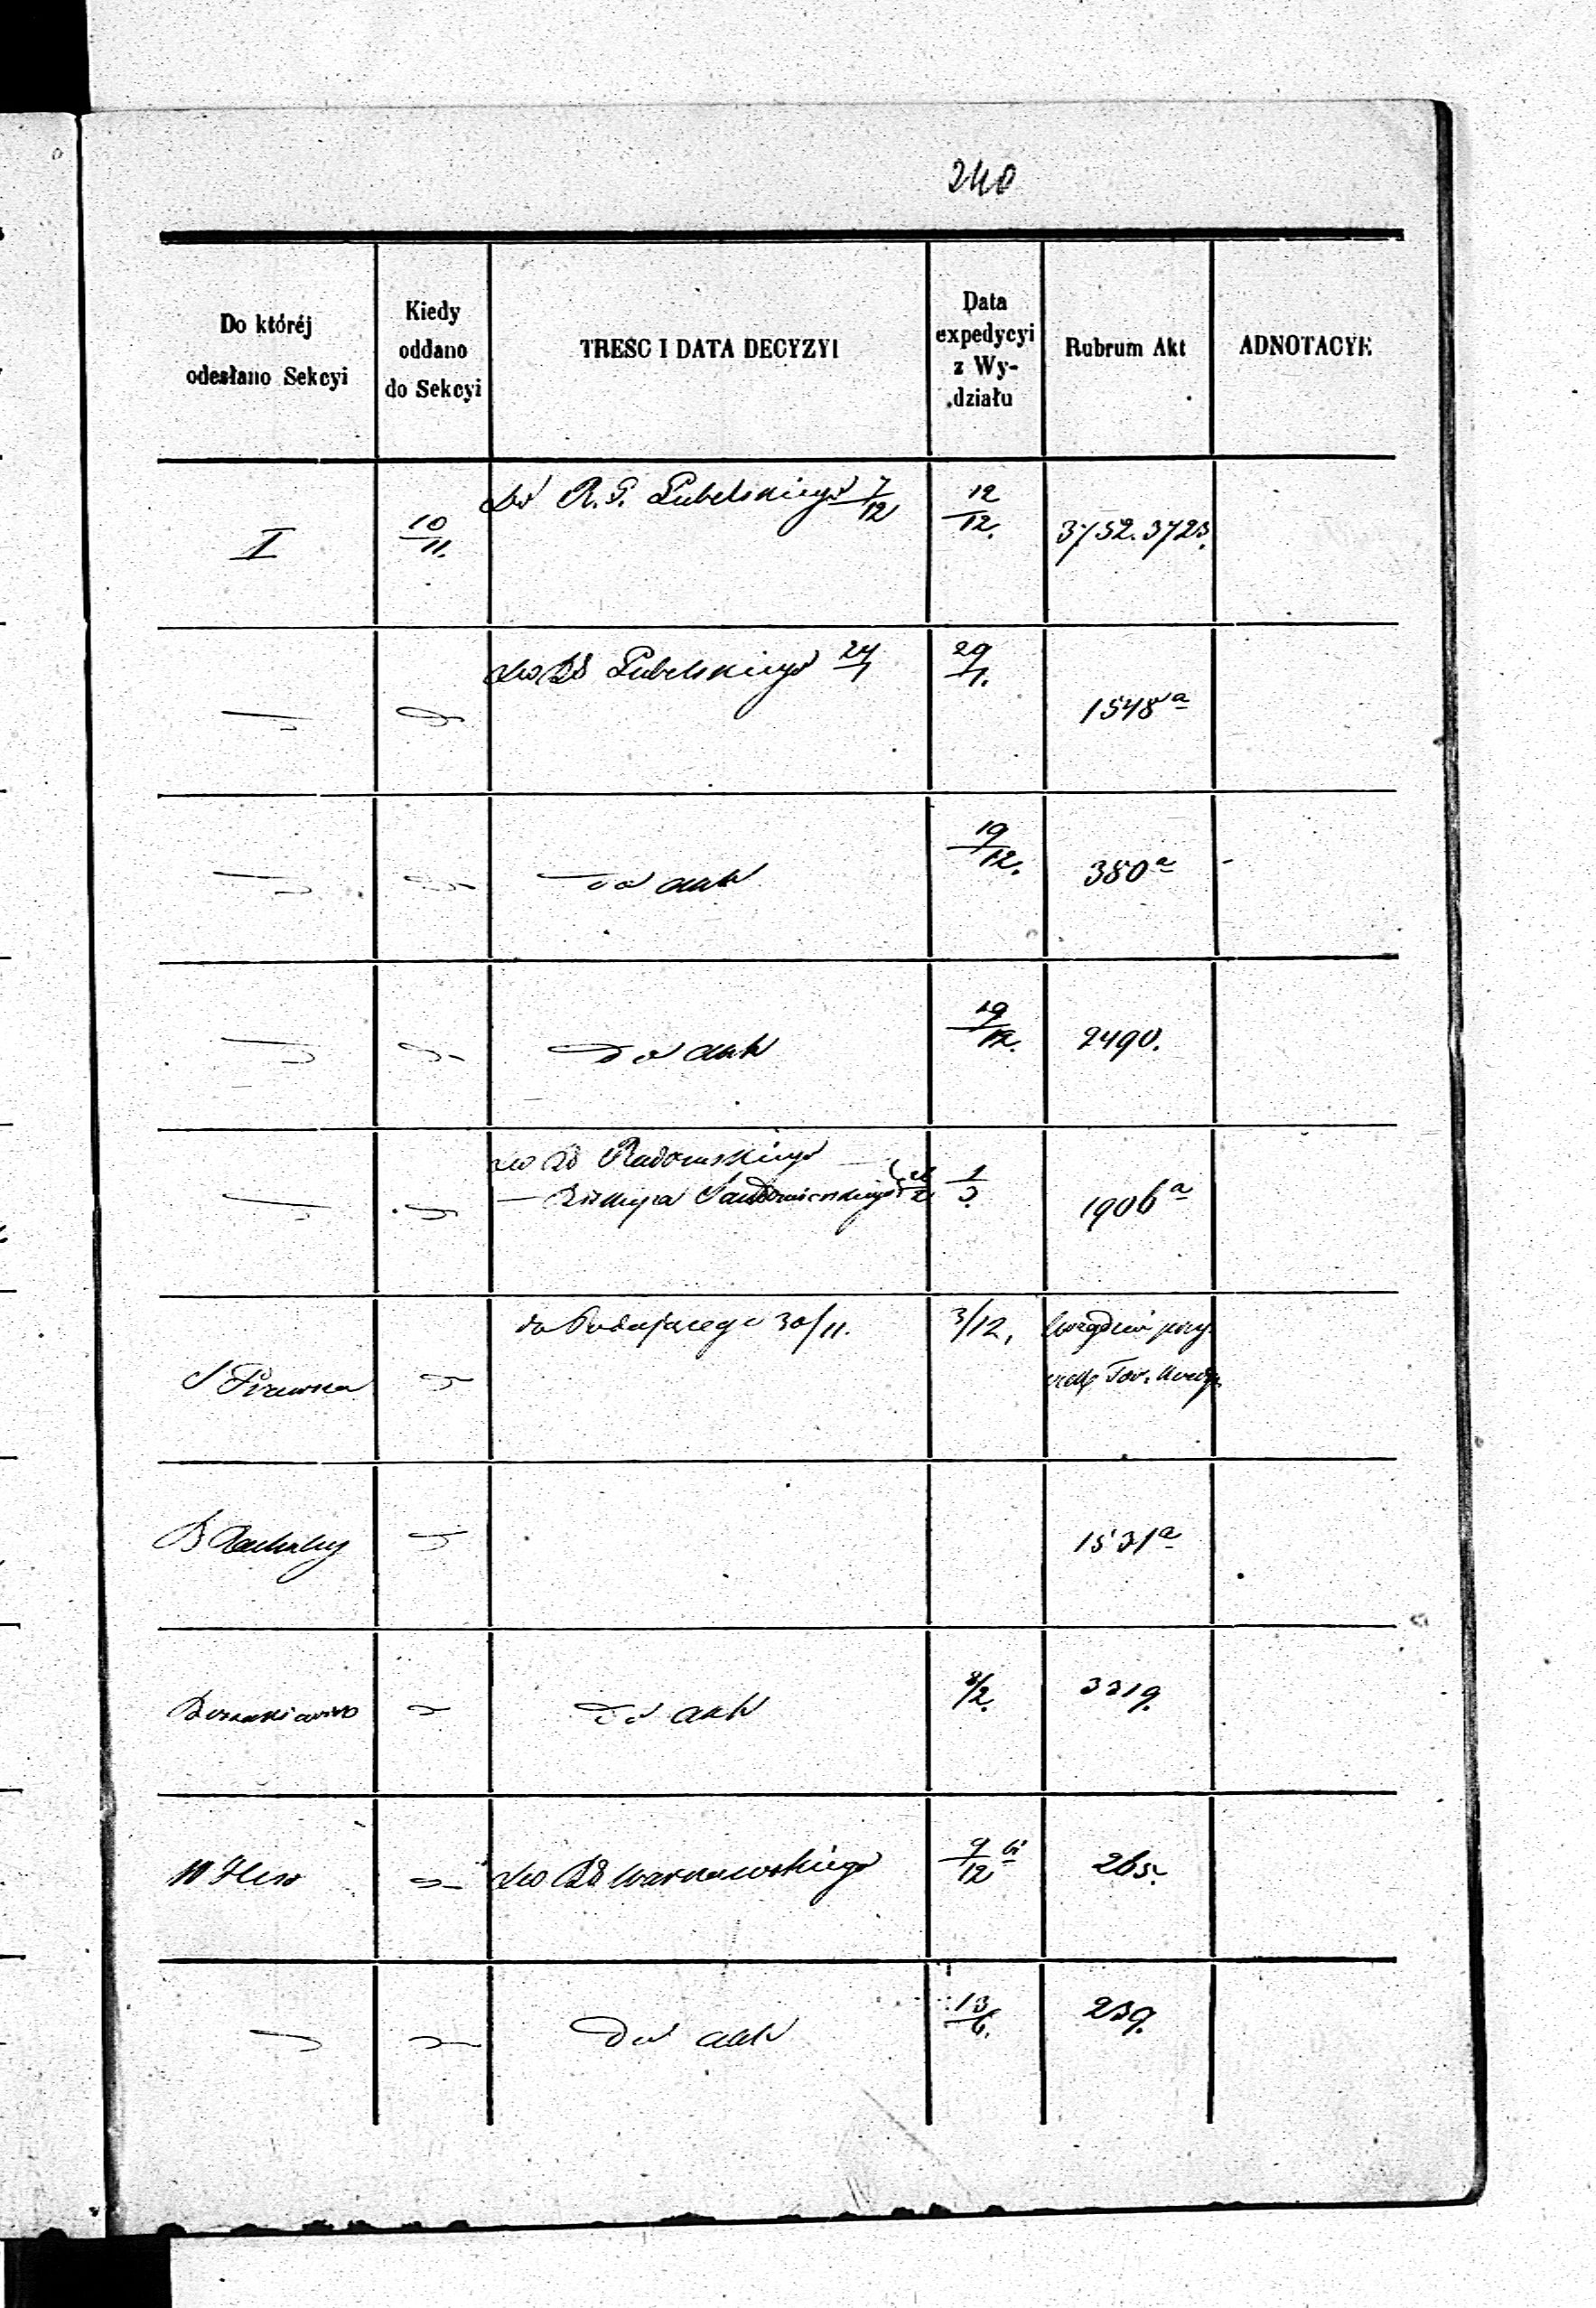 240
Do któréj odesłano Sekcyi
Kiedy oddano do Sekcyi
TREŚC I DATA DECYZYI
Data expedycyi z Wy-działu
Rubrum Akt
ADNOTACYE
I 10/11. Do R. G. Lubelskiego 7/12 12/12. 3752. 3723.
do Rd Lubelskiego 24/1 29/1. 1548a
do akt 19/12. 380a
do akt 19/12. 2490.
do Rd Radomskiego
Biskupa Sandomierskiego 1/3. 1906a
do Podającego 30/11. 3/12.
S Prawna
1531a
do akt 8/2. 3319.
do Rd Warszawskiego 9/12 265.
do akt 13/6. 239.